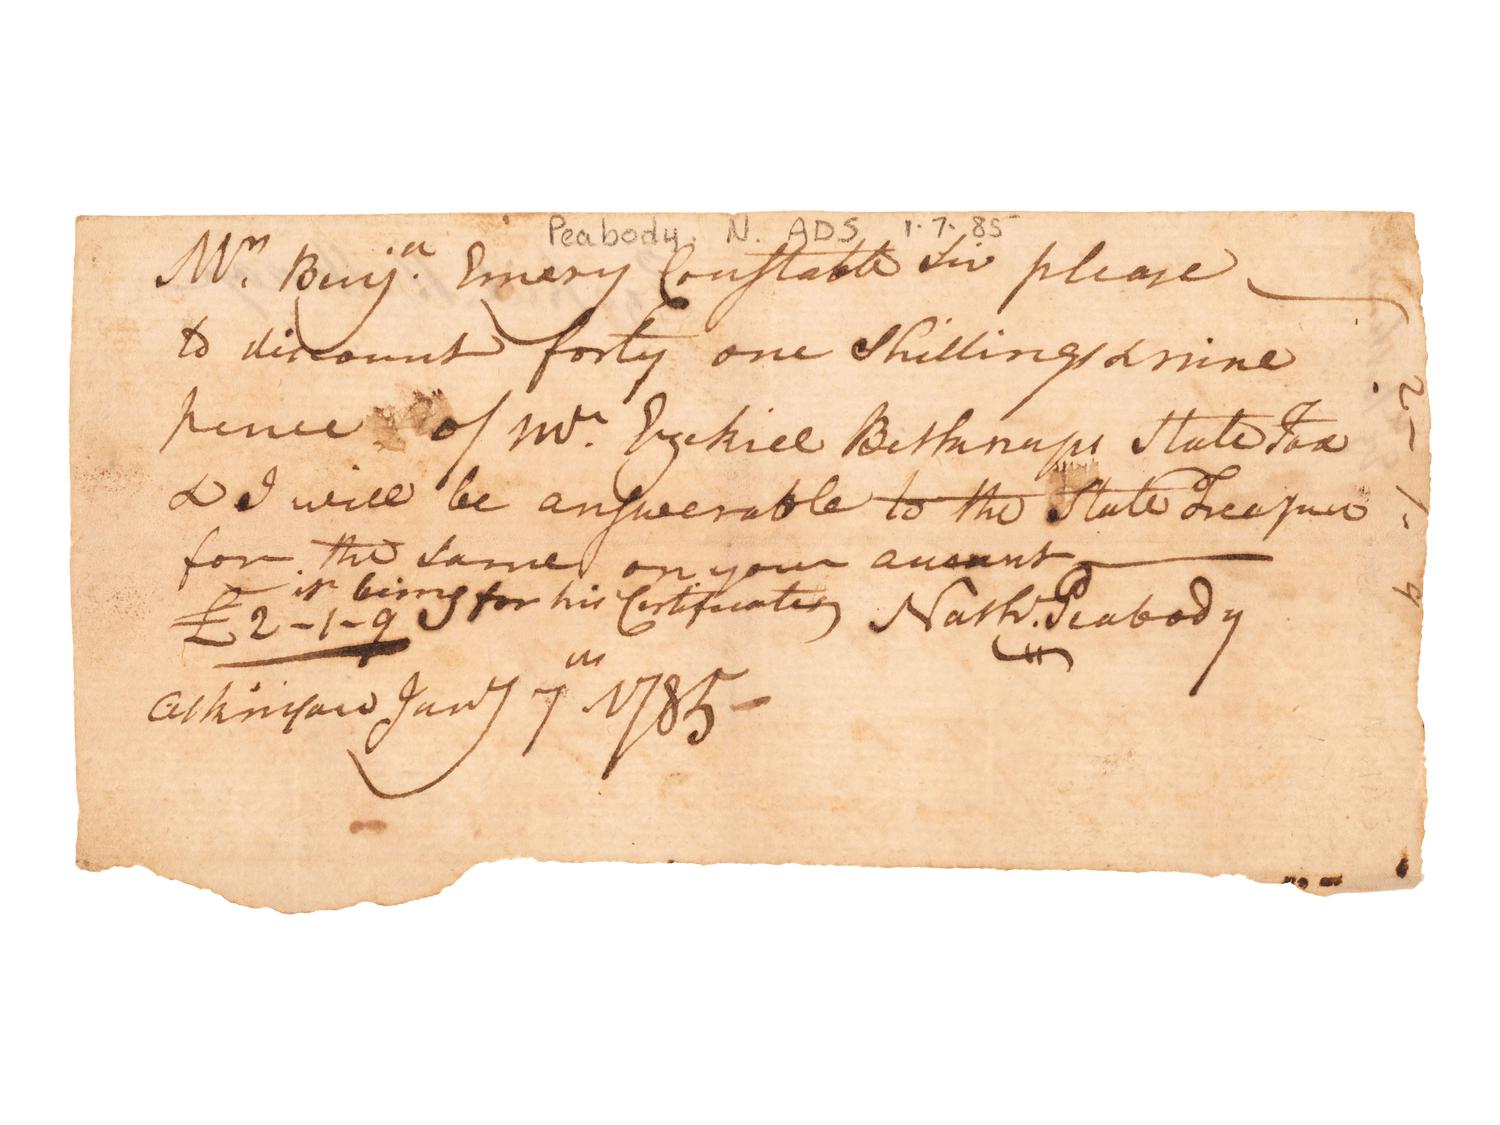 Peabody. N. ADS 1.7.85
Mr. Benja. Emery Constable Sir please
to discount forty one Shillings & nine
pence of Mr. Ezekiel Belknaps State Tax
& I will be answerable to the State Treasurer
for the same on your account
it being for his Certificates
£2-1-9 Nathl. Peabody
Atkinson Jany 7th 1785-
2-1-9